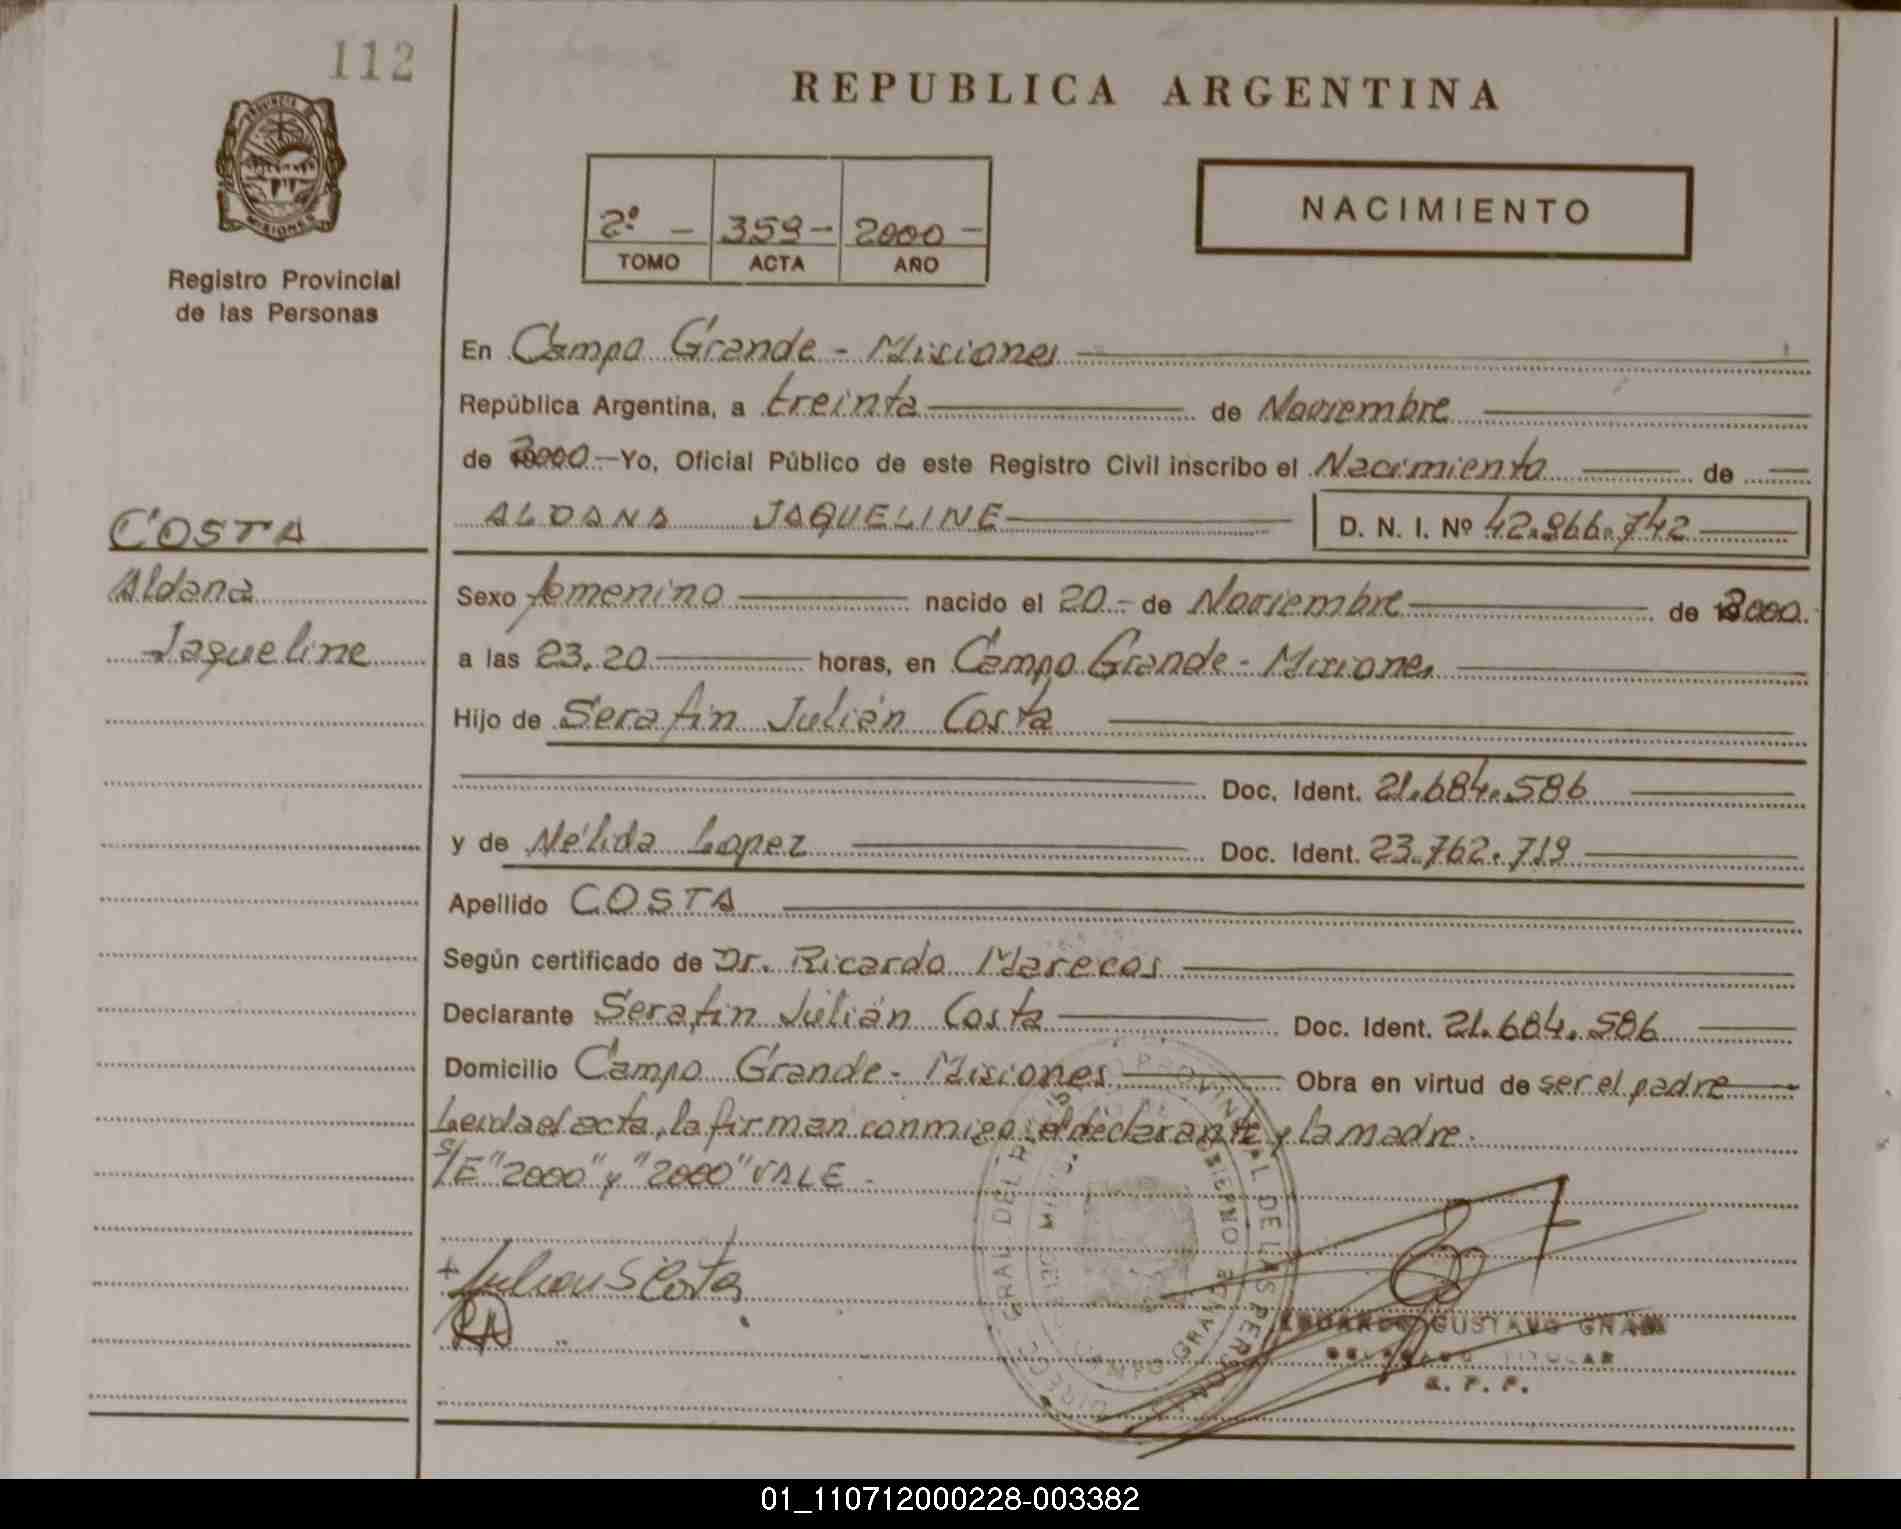 112
REPUBLICA ARGENTINA
PROVINCIA DE
MISIONES
Registro Provincial
de las Personas
2º - 359 - 2000 -
TOMO ACTA AÑO
NACIMIENTO
En Campo Grande - Misiones
República Argentina, a treinta de Noviembre
de 2000 - Yo, Oficial Público de este Registro Civil inscribo el Nacimiento de
ALDANA JAQUELINE D. N. I. Nº 42.966.742
COSTA
Aldana
Jaqueline
Sexo femenino nacido el 20 - de Noviembre de 2000.
a las 23.20 horas, en Campo Grande - Misiones
Hijo de Serafin Julián Costa
Doc. Ident. 21.684.586
y de Nélida Lopez Doc. Ident. 23.762.719
Apellido COSTA
Según certificado de Dr. Ricardo Marecos
Declarante Serafin Julián Costa Doc. Ident. 21.684.586
Domicilio Campo Grande - Misiones Obra en virtud de ser el padre
Leida el acta, la firman conmigo el declarante y la madre.
S/E "2000" y "2000" VALE.
+ Julian S Costa
GUSTAVO
TITULAR
R. P. P.
01_110712000228-003382